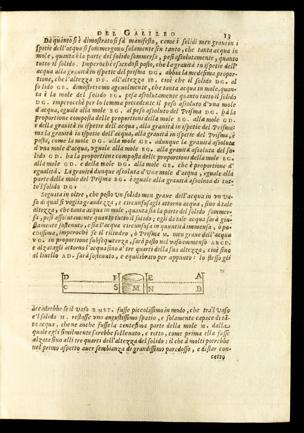 DEL GALILEO 13
Da quanto si è dimostrato si fà manifesto, come i solidi men gravi in i
spetie dell'acqua si sommergono solamente sin tanto, che tanta acqua in
mole, quanta è la parte del solido sommersa, pesi assolutamente, quanto
tutto il solido. Imperochè essendosi posto, che la gravità in ispetie dell'
acqua alla gravità in ispetie del prisma DG. abbia la medesima proporzio-
ne, che l'altezza DF. all'altezza FC. cioè che il solido DG. al
solido GD. dimostreremo agevolmente, che tanta acqua in mole, quan-
ta è la mole del solido BG. pesa assolutamente quanto tutto il solido
DG. Imperochè per lo lemma precedente il peso assoluto d'una mole
d'acqua, eguale alla mole BG. al peso assoluto del Prisma DG. hà la
proporzione composta delle proporzioni della mole BG. alla mole GD.
e della gravità in ispetie dell'acqua, alla gravità in ispetie del Prisma:
ma la gravità in ispetie dell'acqua alla gravità in ispetie del Prisma, è
posta, come la mole GD. alla mole GB. adunque la gravità assoluta
d'una mole d'acqua, eguale alla mole BG. alla gravità assoluta del so-
lido GD. hà la proporzione composta delle proporzioni della mole BG.
alla mole GD. e della mole DG. alla mole GB. che è proporzione d'
egualità. La gravità dunque assoluta d'una mole d'acqua, eguale alla
parte della mole del Prisma BG. è eguale alla gravità assoluta di tut-
to'l solido DG.
Seguita in oltre, che posto un solido men grave dell'acqua in un va-
so di qual si voglia grandezza, e circunfusagli attorno acqua, sino à tale
altezza, che tanta acqua in mole, quanta sia la parte del solido sommer-
sa, pesi assolutamente quanto tutto il solido; egli da tale acqua sarà giu-
stamente sostenuto, sia l'acqua circunfusa in quantità immensa, ò po-
chissima, imperochè se il cilindro, ò Prisma M. men grave dell'acqua
in proporzione subsequiterza, sarà posto nel vaso immenso ABCD.
e alzatagli attorno l'acqua sino à tre quarti della sua altezza, cioè sino
al livello AD. sarà sostenuto, e equilibrato per appunto: lo stesso gli
D F E A
C S M N B
accaderebbe se il vaso ENSF. fusse piccolissimo in modo, che trà'l vaso
e'l solido M. restasse uno angustissimo spatio, e solamente capace di tã-
ta acqua, che ne anche fusse la centesima parte della mole M. dalla
quale egli similmente sarebbe sollevato, e retto, come prima ella fusse
alzata sino alli tre quarti dell'altezza del solido: il che à molti potrebbe
nel primo aspetto aver sembianza di grandissimo paradosso, e destar con-
cetto